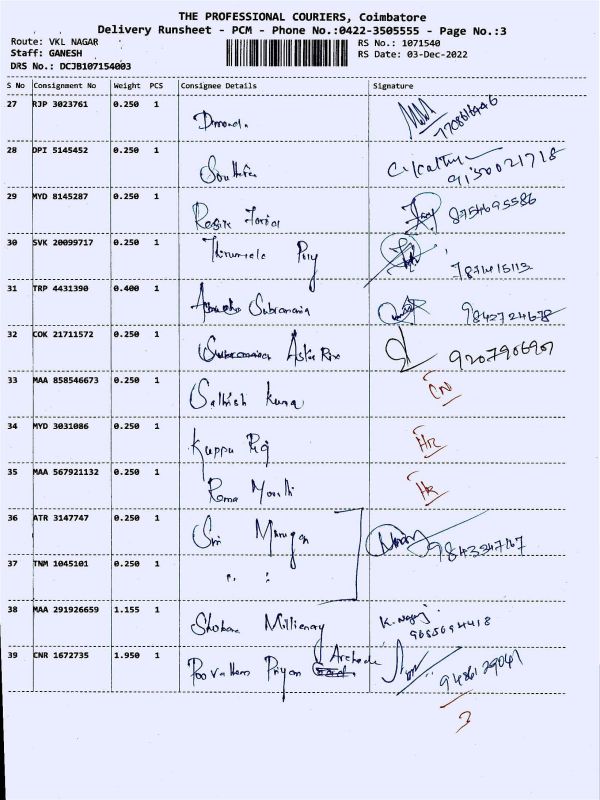 THE PROFESSIONAL COURIERS, Coimbatore
Delivery Runsheet - PCM - Phone No.:0422-3505555 - Page No.:3
Route: VKL NAGAR RS No.: 1071540
Staff: GANESH RS Date: 03-Dec-2022
DRS No.: DCJB107154003
S No Consignment No Weight PCS Consignee Details Signature
27 RJP 3023761 0.250 1
28 DPI 5145452 0.250 1 9150021718
29 MYD 8145287 0.250 1 8754695586
30 SVK 20099717 0.250 1 Thirumala
31 TRP 4431390 0.400 1 Subramania 9843724678
32 COK 21711572 0.250 1 9207906907
33 MAA 858546673 0.250 1 Sathish Kumar CN
34 MYD 3031086 0.250 1 Kuppu Raj HR
35 MAA 567921132 0.250 1 Rama HR
36 ATR 3147747 0.250 1 Sri Murugan 9843347167
37 TNM 1045101 0.250 1 " "
38 MAA 291926659 1.155 1 Shobana Millienary K. Nagaraj
9655094418
39 CNR 1672735 1.950 1 Priyan 9486129041
3